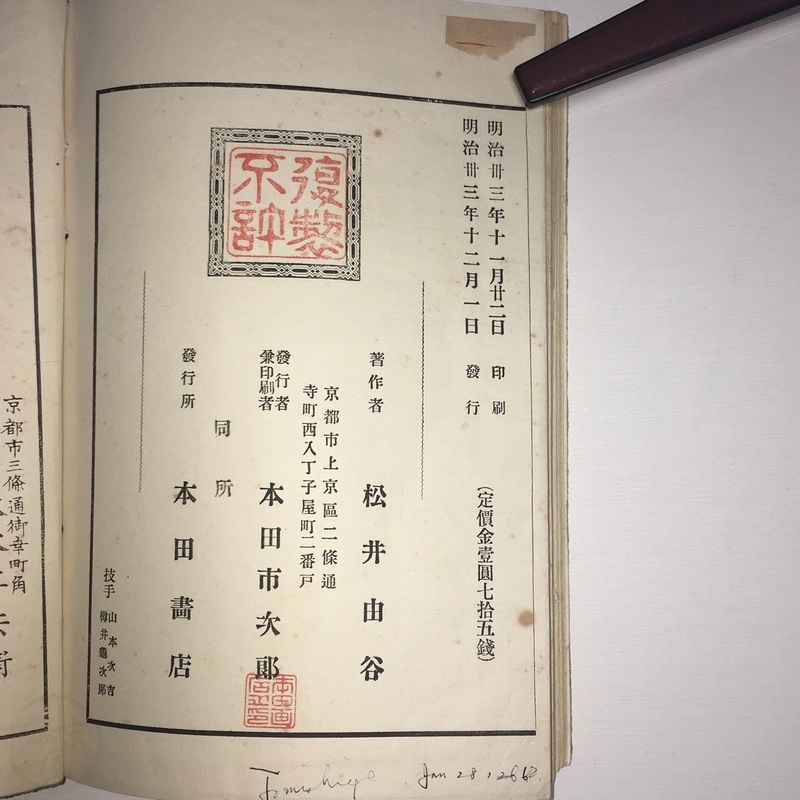 明治卅三年十一月廿二日 印刷
明治卅三年十二月一日 發行
(定價金壹圓七拾五錢)
復製
不許
著作者 松井由谷
京都市上京區二條通
寺町西入丁子屋町二番戸
發行者
兼印刷者 本田市次郎
同所
發行所 本田書店
技手 山本次吉
櫻井龜次郎
Jan 28,
京都市三條通御幸町角